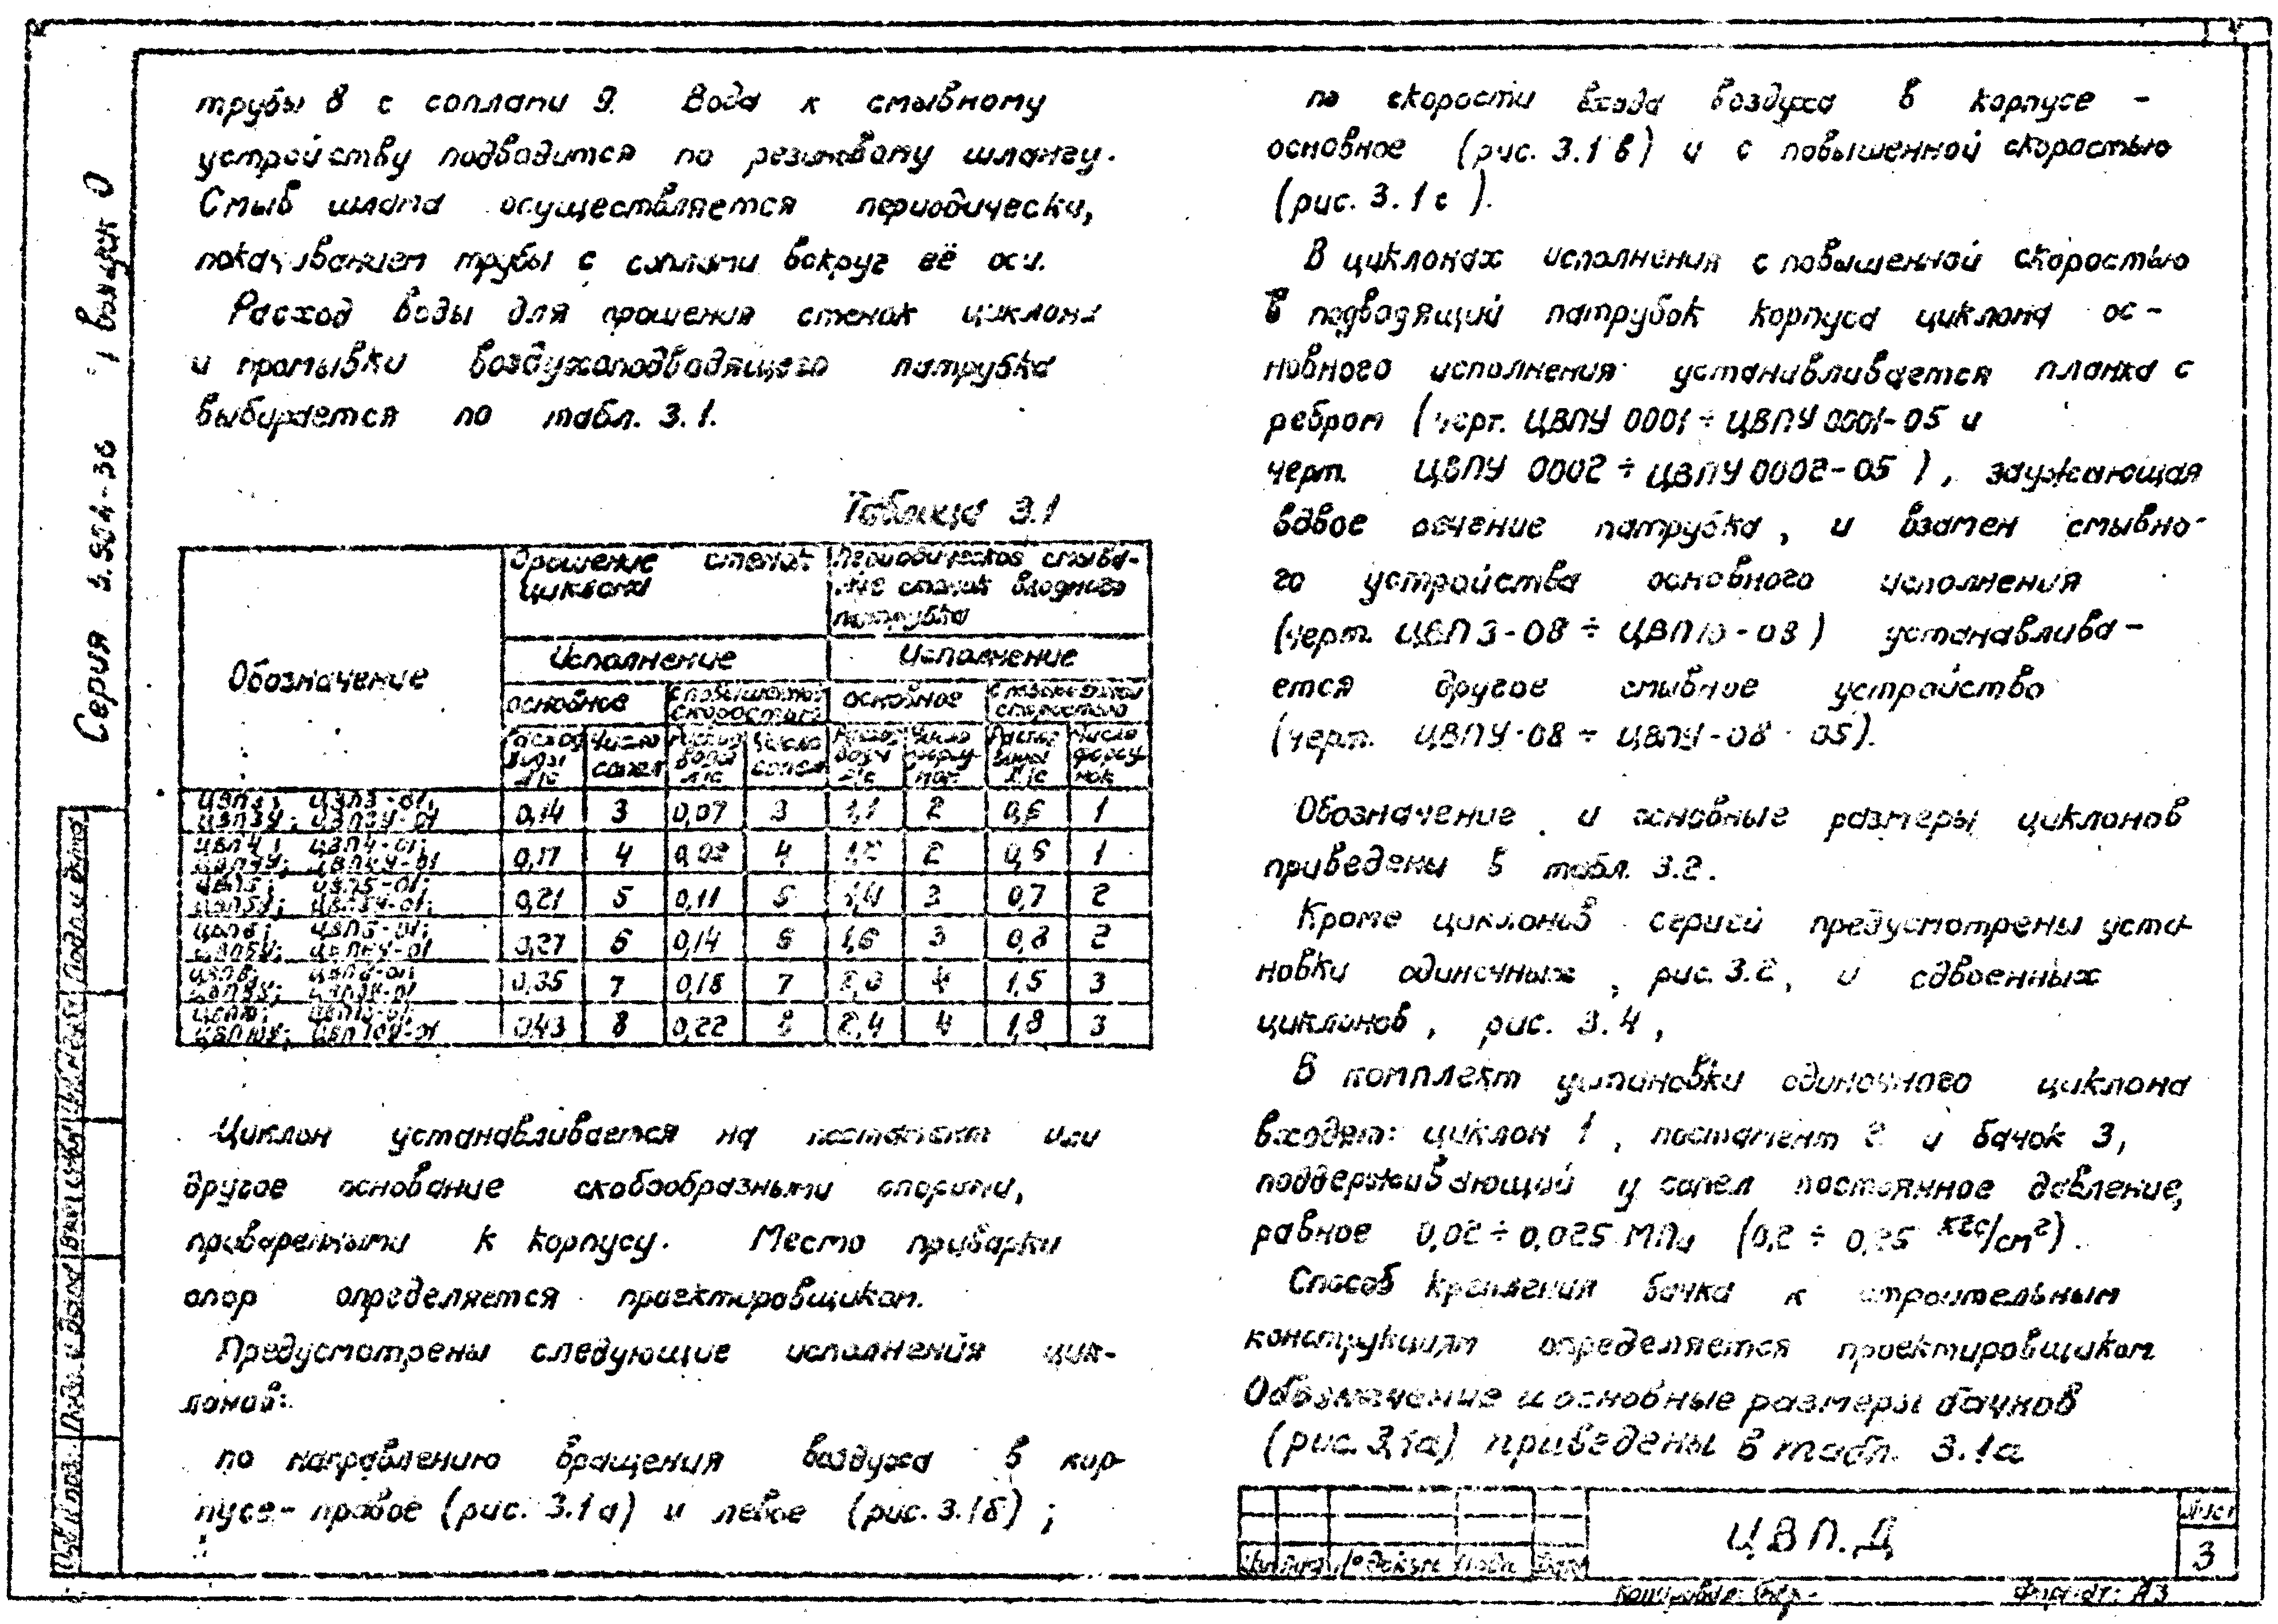 трубы 8 с соплами 9. Вода к смывному
устройству подводится по резиновому шлангу.
Смыв шлама осуществляется периодически,
покачиванием трубы с соплами вокруг её оси.
Расход воды для орошения стенок циклона
и промывки воздухоподводящего патрубка
выбирается по табл. 3.1.
Таблица 3.1
Обозначение
Орошение стенок циклона
Периодическое смыва-
ние стенок входного
патрубка
Исполнение Исполнение
основное с повышенной скоростью основное с повышенной скоростью
Расход воды л/с Число сопел Расход воды л/с Число сопел Расход воды л/с Число форсу-нок Расход воды л/с Число форсу-нок
ЦВП3; ЦВП3-01;
ЦВП3У; ЦВП3У-01 0,14 3 0,07 3 1,1 2 0,6 1
ЦВП4; ЦВП4-01;
ЦВП4У; ЦВП4У-01 0,17 4 4 1,2 2 0,6 1
ЦВП5; ЦВП5-01;
ЦВП5У; ЦВП5У-01; 0,21 5 0,11 5 1,4 3 0,7 2
ЦВП6; ЦВП6-01;
ЦВП6У; ЦВП6У-01 0,27 6 0,14 6 1,6 3 0,8 2
ЦВП8; ЦВП8-01;
ЦВП8У; ЦВП8У-01 0,35 7 0,18 7 4 1,5 3
ЦВП10; ЦВП10-01;
ЦВП10У; ЦВП10У-01 0,43 8 0,22 8 2,4 4 1,8 3
Циклон устанавливается на постамент или
другое основание скобообразными опорами,
приваренными к корпусу. Место приварки
опор определяется проектировщиком.
Предусмотрены следующие исполнения цик-
лонов:
по направлению вращения воздуха в кор-
пусе - правое (рис. 3.1а) и левое (рис. 3.1б) ;
по скорости входа воздуха в корпусе -
основное (рис. 3.1в) и с повышенной скоростью
(рис. 3.1с ).
В циклонах исполнения с повышенной скоростью
в подводящий патрубок корпуса циклона ос-
новного исполнения устанавливается планка с
ребром (черт. ЦВПУ 0001 ÷ ЦВПУ 0001-05 и
черт. ЦВПУ 0002 ÷ ЦВПУ 0002-05 ) , заужающая
вдвое сечение патрубка , и взамен смывно-
го устройства основного исполнения
(черт. ЦВП3-08 ÷ ЦВП10-08 ) устанавлива-
ется другое смывное устройство
(черт. ЦВПУ-08 ÷ ЦВПУ-08-05).
Обозначение и основные размеры циклонов
приведены в табл. 3.2.
Кроме циклонов серией предусмотрены уста-
новки одиночных , рис. 3.2 , и сдвоенных
циклонов , рис. 3.4 ,
В комплект установки одиночного циклона
входят: циклон 1 , постамент 2 и бачок 3,
поддерживающий у сопел постоянное давление,
равное 0,02 ÷ 0,025 МПа (0,2 ÷ 0,25 кгс/см²).
Способ крепления бачка к строительным
конструкциям определяется проектировщиком
Обозначение и основные размеры бачков
(рис. 3,1а) приведены в табл. 3.1а
Серия 5.904-36 выпуск 0
Подп. и дата
Взам. инв. №
Подп. и дата
Инв. № подл.
Изм. Лист № докум. Подп. Дата
ЦВП.Д
Лист
3
Копировал:
Формат: А3